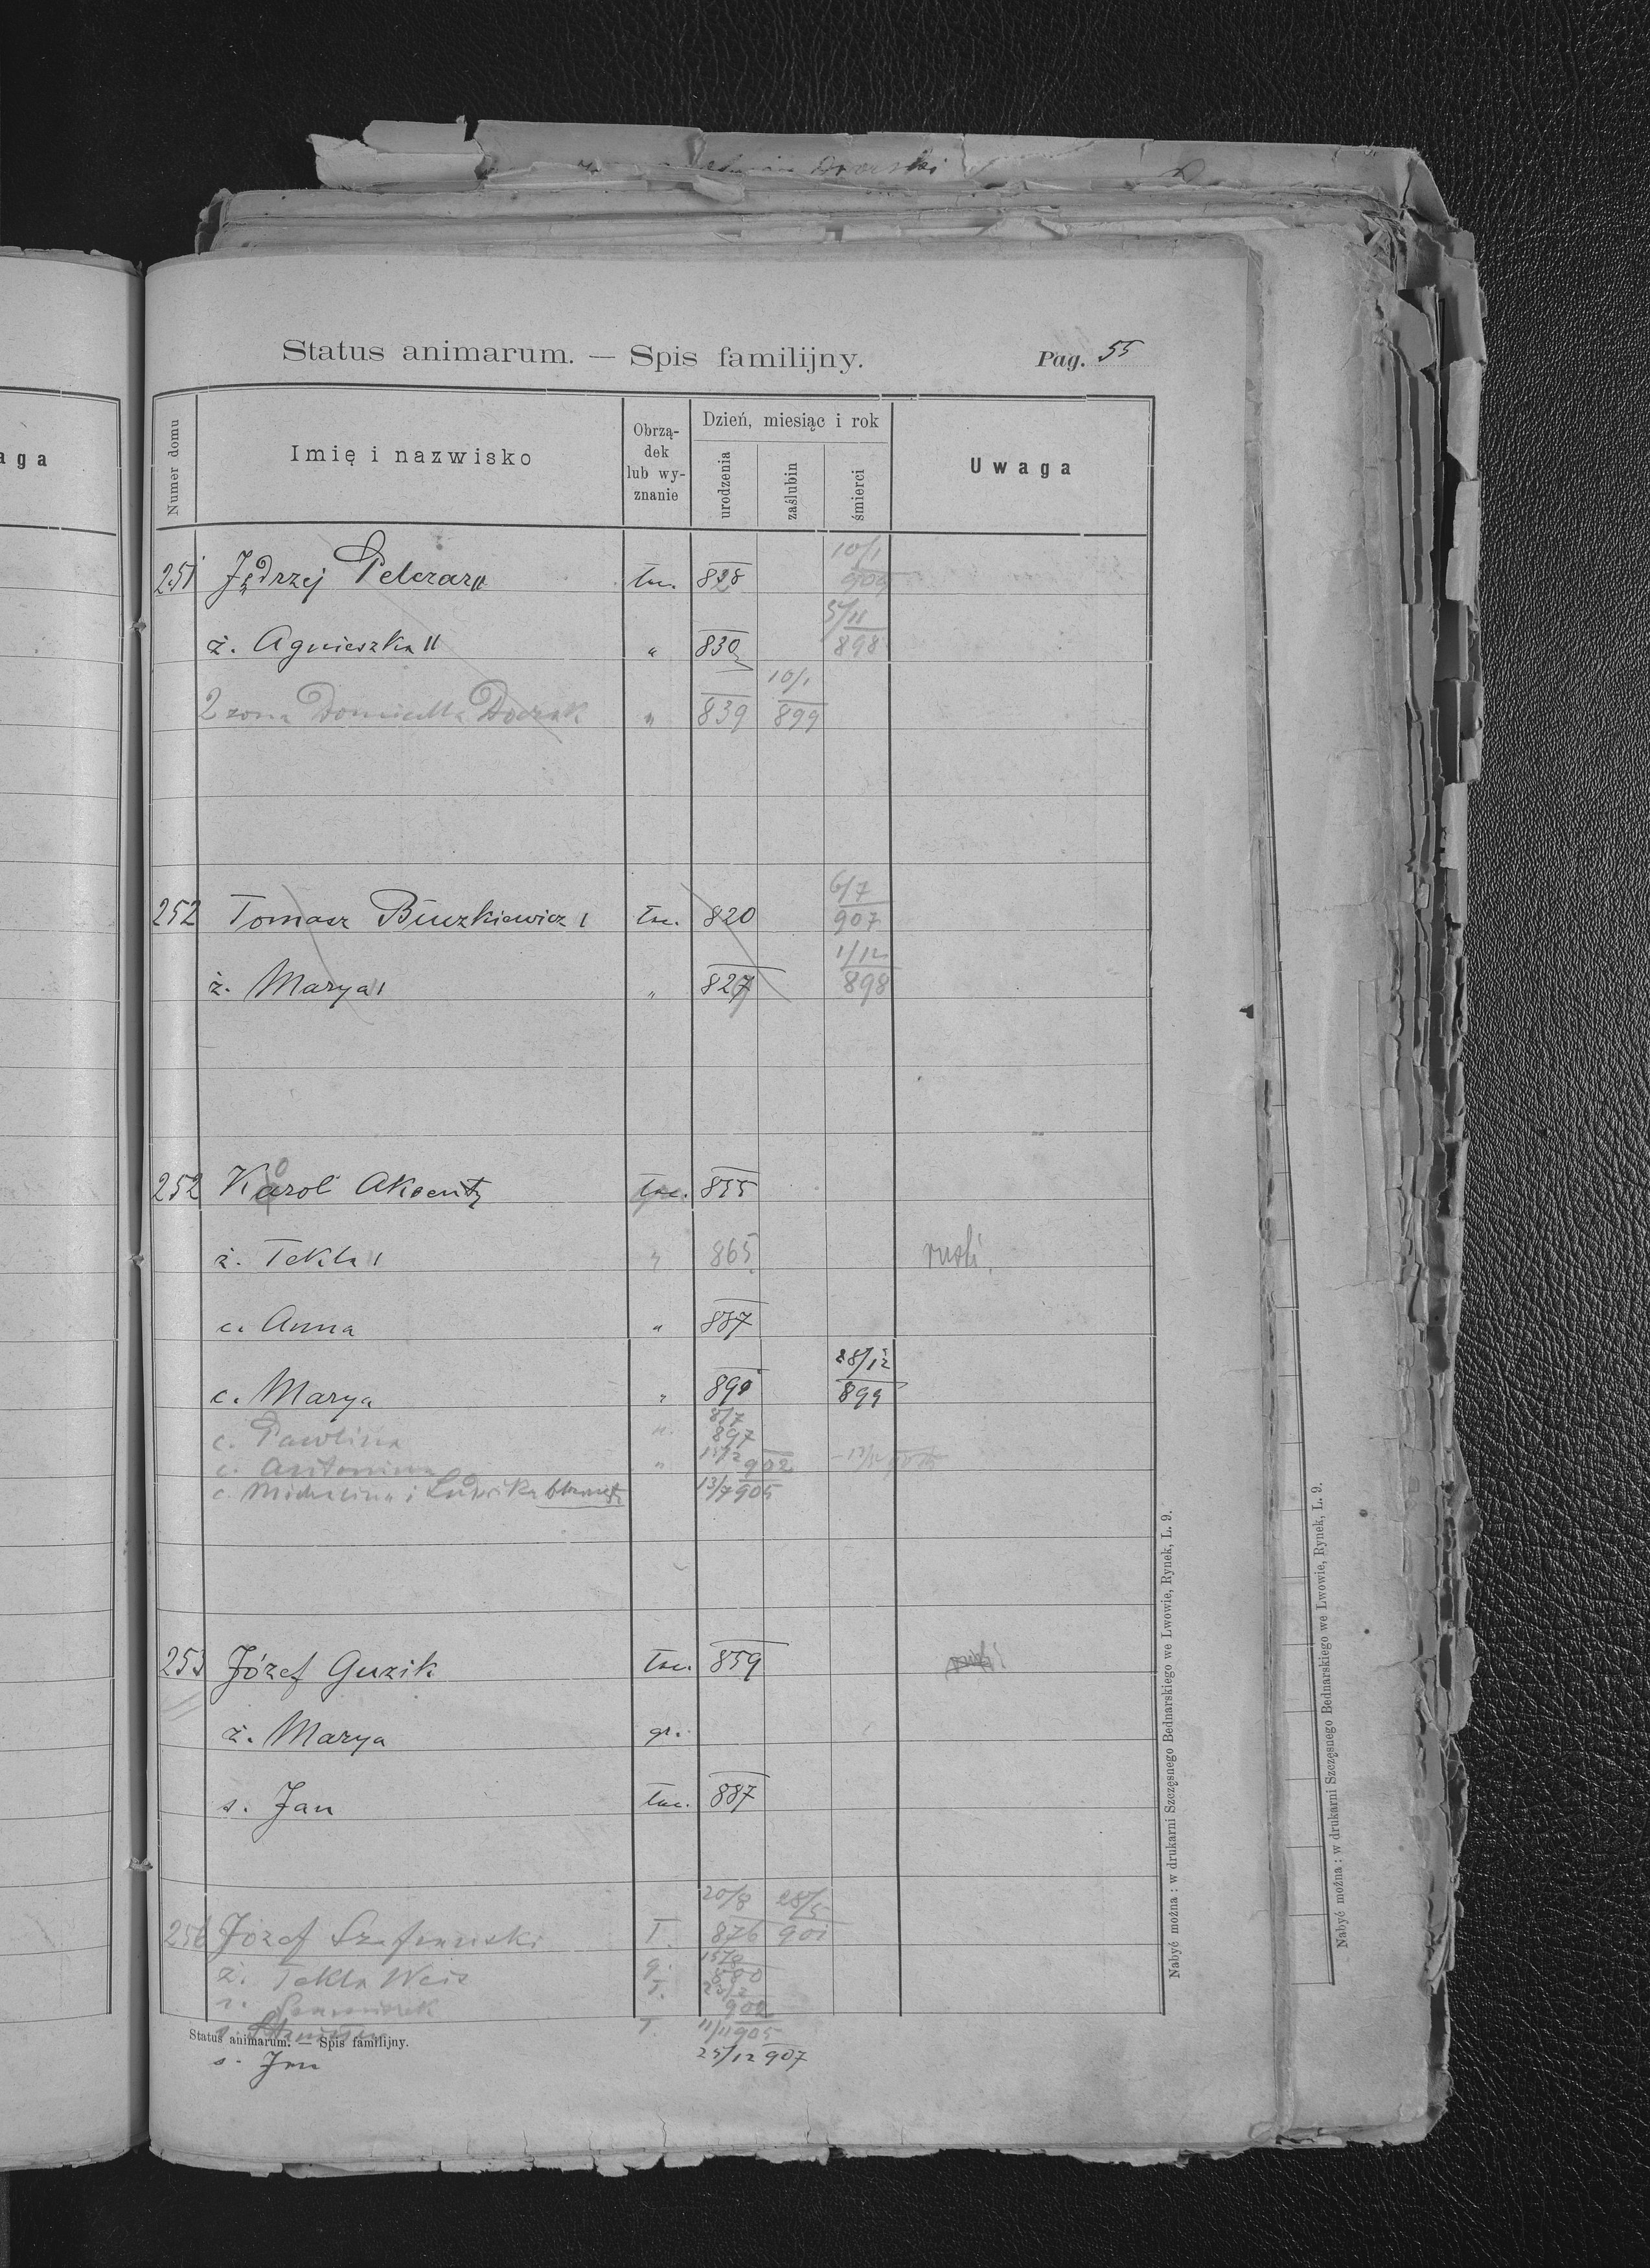 Status animarum. — Spis familijny.
Pag. 55
aga
Numer domu
Imię i nazwisko
Obrzą-
dek
lub wy-
znanie
Dzień, miesiąc i rok
urodzenia
zaślubin
śmierci
Uwaga
10/1
251 Jędrzej Pelczar łac. 828
5/11
ż. Agnieszka II " 830 898
10/1
2 żona Domicella " 839 899
6/7
252 Tomasz łac. 820 907
1/12
ż. Marya " 827 898
252 Karol łac. 855
ż. Tekla " 865 ruski
c. Anna " 887
28/12
c. Marya " 890 899
8/7
c. Paulina " 897
c. Antonina " 15/2 902
c. Michalina i Ludwika 13/7 905
253 Józef Guzik łac. 859
ż. Marya gr.
s. Jan łac. 887
20/8 28/5
256 Józef T. 876 901
ż. Tekla Weis g. 880
T. 902
T. 11/11 905
Status animarum. — Spis familijny.
s. Jan 25/12 907
Nabyć można : w drukarni Szczęsnego Bednarskiego we Lwowie, Rynek, L. 9.
Nabyć można : w drukarni Szczęsnego Bednarskiego we Lwowie, Rynek, L. 9.